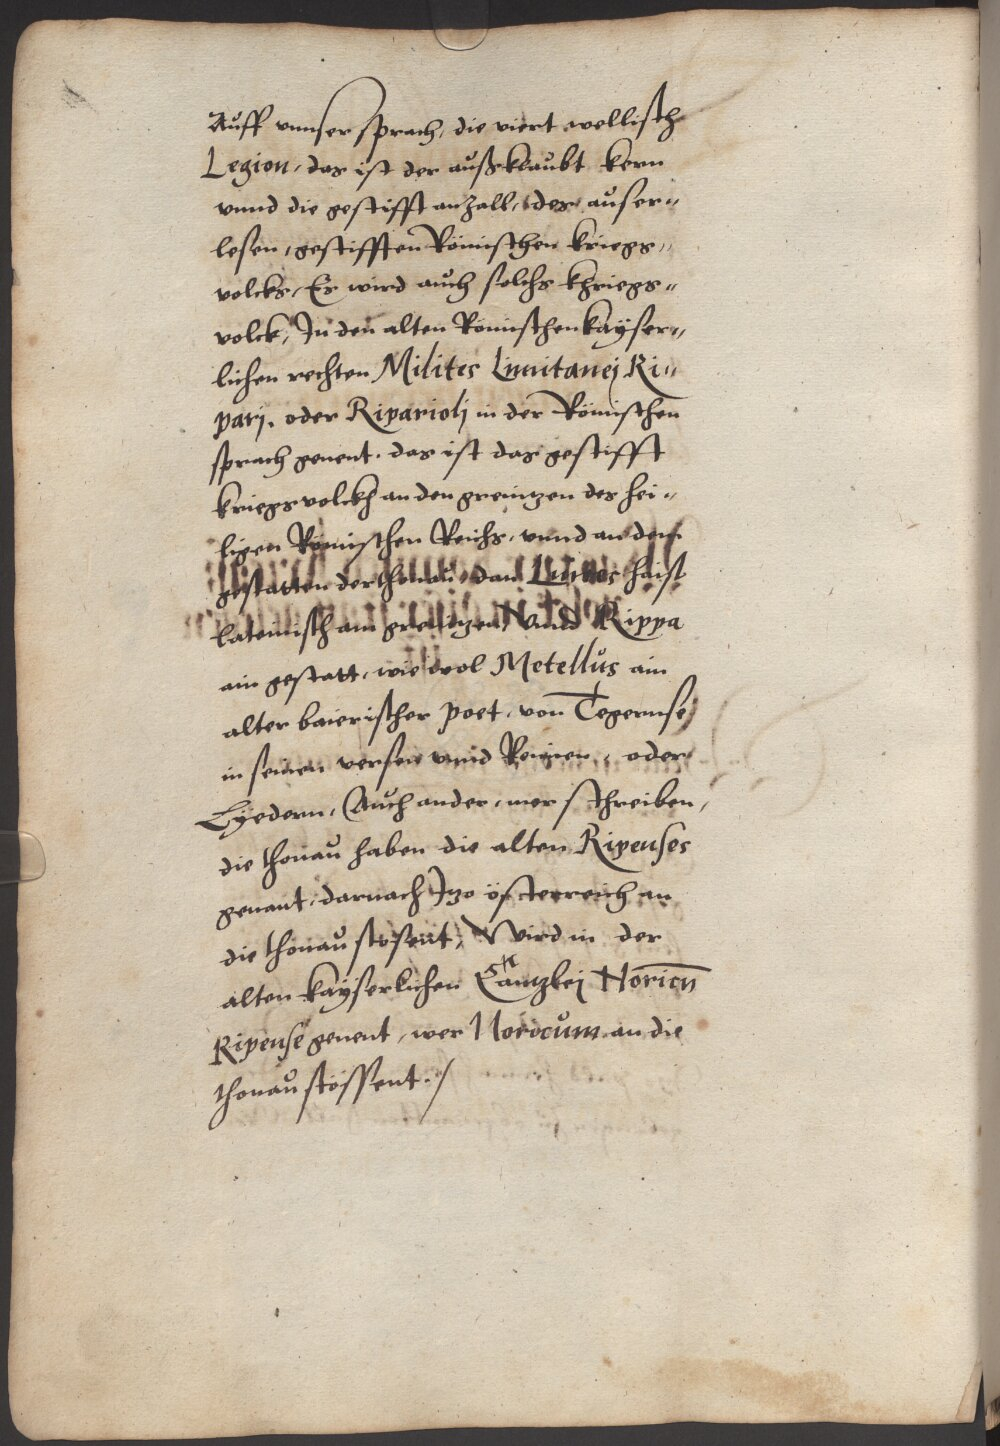 Auff vnnser sprach, die viert wellisch
Legion, das ist der außklaubt kern
vnnd die gestifft anzall, des auser„
lesen, gestifften Römischen kriegs„
volcks, Es wird auch solchs khriegs„
volck, In den alten Römischen kayser„
lichen rechten Milites Limitanej Ri„
parj. oder Ripariolj in der Römischen
sprach genent. das ist das gestifft
kriegsvolckh an den greinitzen des hei„
ligen Römischen Reichs, vnnd an den
gestatten der thonau, dan Limites haist
lateinisch ain greinitzen, vnnd Rippa
ain gestatt, wie wol Metellus ain
alter baierischer poet, von Tegernse
in seinen versen vnnd Reimen, oder
Lyedern, Auch ander, mer schreiben,
die thonau haben die alten Ripenses
genant, darnach Izo össterreich an
die thonau stosent, Wird in der
alten kayserlichen Cantzlej Noricū
Ripense genent, wer Noricum an die
thonau stossent ./